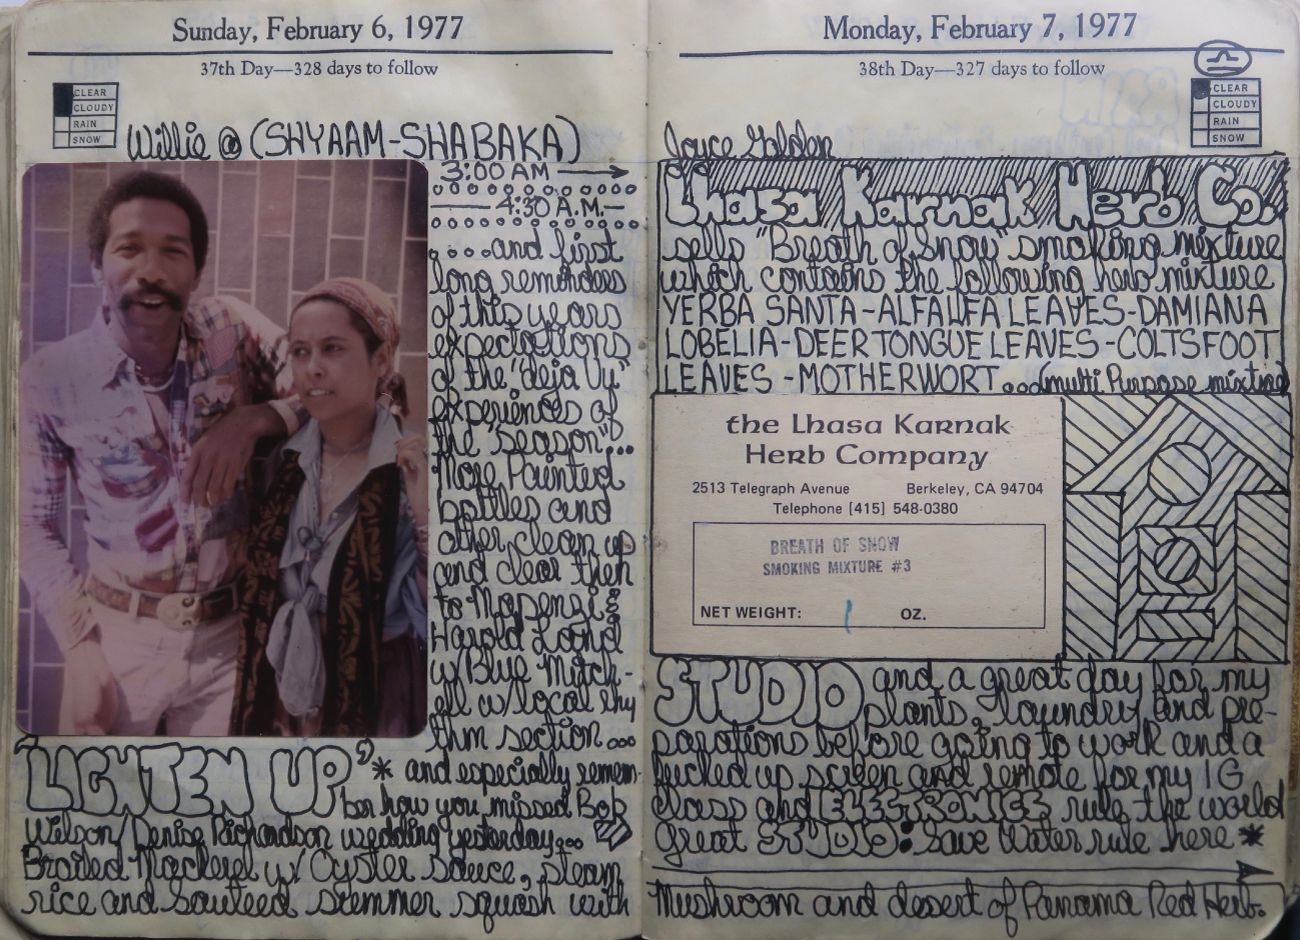 Sunday, February 6, 1977
37th Day—328 days to follow
CLEAR
CLOUDY
RAIN
SNOW
Willie @ (SHYAAM-SHABAKA)
3:00 AM
4:30 A.M.
....and first
long reminders
of this years
expectations
of the "deja Vu"
experiences of
the "season"...
More Painted
bottles and
other clean up
and clear then
to Mapenzi &
Harold Land
w/Blue Mitch-
ell w/local rhy
thm section...
"LIGHTEN UP"* and especially remem-
ber how you missed Bob
Wilson/Denise Richardson wedding yesterday...
Broiled Mackerel w/ Oyster Sauce, steam
rice and Sauteed summer squash with
Monday, February 7, 1977
38th Day—327 days to follow
CLEAR
CLOUDY
RAIN
SNOW
Joyce Golden
Lhasa Karnak Herb Co.
sells "Breath of Snow" smoking mixture
which contains the following herb mixture
YERBA SANTA-ALFALFA LEAVES-DAMIANA
LOBELIA-DEER TONGUE LEAVES-COLTSFOOT
LEAVES-MOTHERWORT...(multi Purpose mixture)
the Lhasa Karnak
Herb Company
2513 Telegraph Avenue Berkeley, CA 94704
Telephone [415] 548-0380
BREATH OF SNOW
SMOKING MIXTURE #3
NET WEIGHT: 1 OZ.
STUDIO and a great day for my
plants, laundry and pre-
parations before going to work and a
fucked up screen and remote for my IG
class and ELECTRONICS rule the world
Great STUDIO: Save Water rule here *
Mushroom and desert of Panama Red Herb.